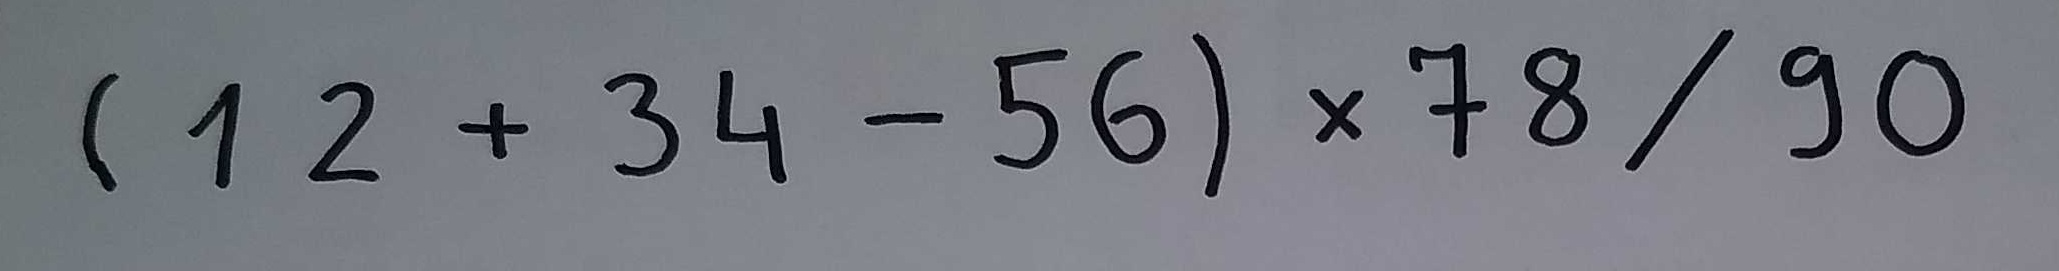 (12 + 34 - 56) × 78 / 90